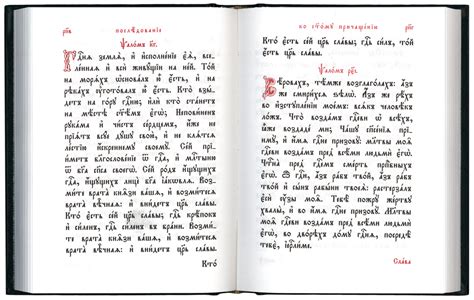 рв҃ Послѣдованїе
Ѱаломъ кг҃.
Гдⷭ҇нѧ землѧ, и исполненїе еѧ, все-
леннаѧ и вси живꙋщїи на ней. Той
на морѧхъ ѡсновалъ ю есть, и на
рѣкахъ ᲂуготовалъ ю есть. Кто взы-
детъ на горꙋ гдⷭ҇ню; или кто станетъ
на мѣстѣ ст҃ѣмъ егѡ; Неповиненъ
рꙋкама и чистъ сердцемъ, иже не
прїѧтъ всꙋе дꙋшꙋ свою, и не клѧтсѧ
лестїю искреннемꙋ своемꙋ. Сей прї-
иметъ благословенїе ѿ гдⷭ҇а, и млⷭ҇тыню
ѿ бг҃а сп҃са своегѡ. Сей родъ ищꙋщихъ
гдⷭ҇а, ищꙋщихъ лице бг҃а їакѡвлѧ. Возмите
врата кнѧзи вашѧ, и возмитесѧ
врата вѣчнаѧ: и внидетъ цр҃ь славы.
Кто есть сей цр҃ь славы; гдⷭ҇ь крѣпокъ
и силенъ, гдⷭ҇ь силенъ въ брани. Возмите
врата кнѧзи вашѧ, и возмитесѧ
врата вѣчнаѧ: и внидетъ цр҃ь славы.
Кто
ко ст҃омꙋ причащенїю рг҃
Кто есть сей цр҃ь славы; гдⷭ҇ь силъ, той
есть цр҃ь славы.
Ѱаломъ рє҃і.
Вѣровахъ, тѣмже возглаголахъ: азъ
же смирихсѧ ѕѣлѡ. Азъ же рѣхъ
во изстꙋпленїи моемъ: всѧкъ человѣкъ
ложь. Что воздамъ гдⷭ҇ви ѡ всѣхъ,
ꙗже воздаде ми; Чашꙋ спⷭ҇енїѧ
прїимꙋ, и имѧ гдⷭ҇не призовꙋ. Мл҃твы моѧ
гдⷭ҇ви воздамъ пред̾ всѣми людьми егѡ.
Честна пред̾ гдⷭ҇емъ смерть прпⷣбныхъ
егѡ. Ѽ гдⷭ҇и, азъ рабъ твой, азъ рабъ
твой и сынъ рабыни твоеѧ: растерзалъ
еси ᲂузы моѧ. Тебѣ пожрꙋ жертвꙋ
хвалы, и во имѧ гдⷭ҇не призовꙋ. Мл҃твы
моѧ гдⷭ҇ви воздамъ пред̾ всѣми людьми
егѡ, во дворѣхъ домꙋ гдⷭ҇нѧ, посредѣ
тебе, їерⷭ҇лиме.
Слава